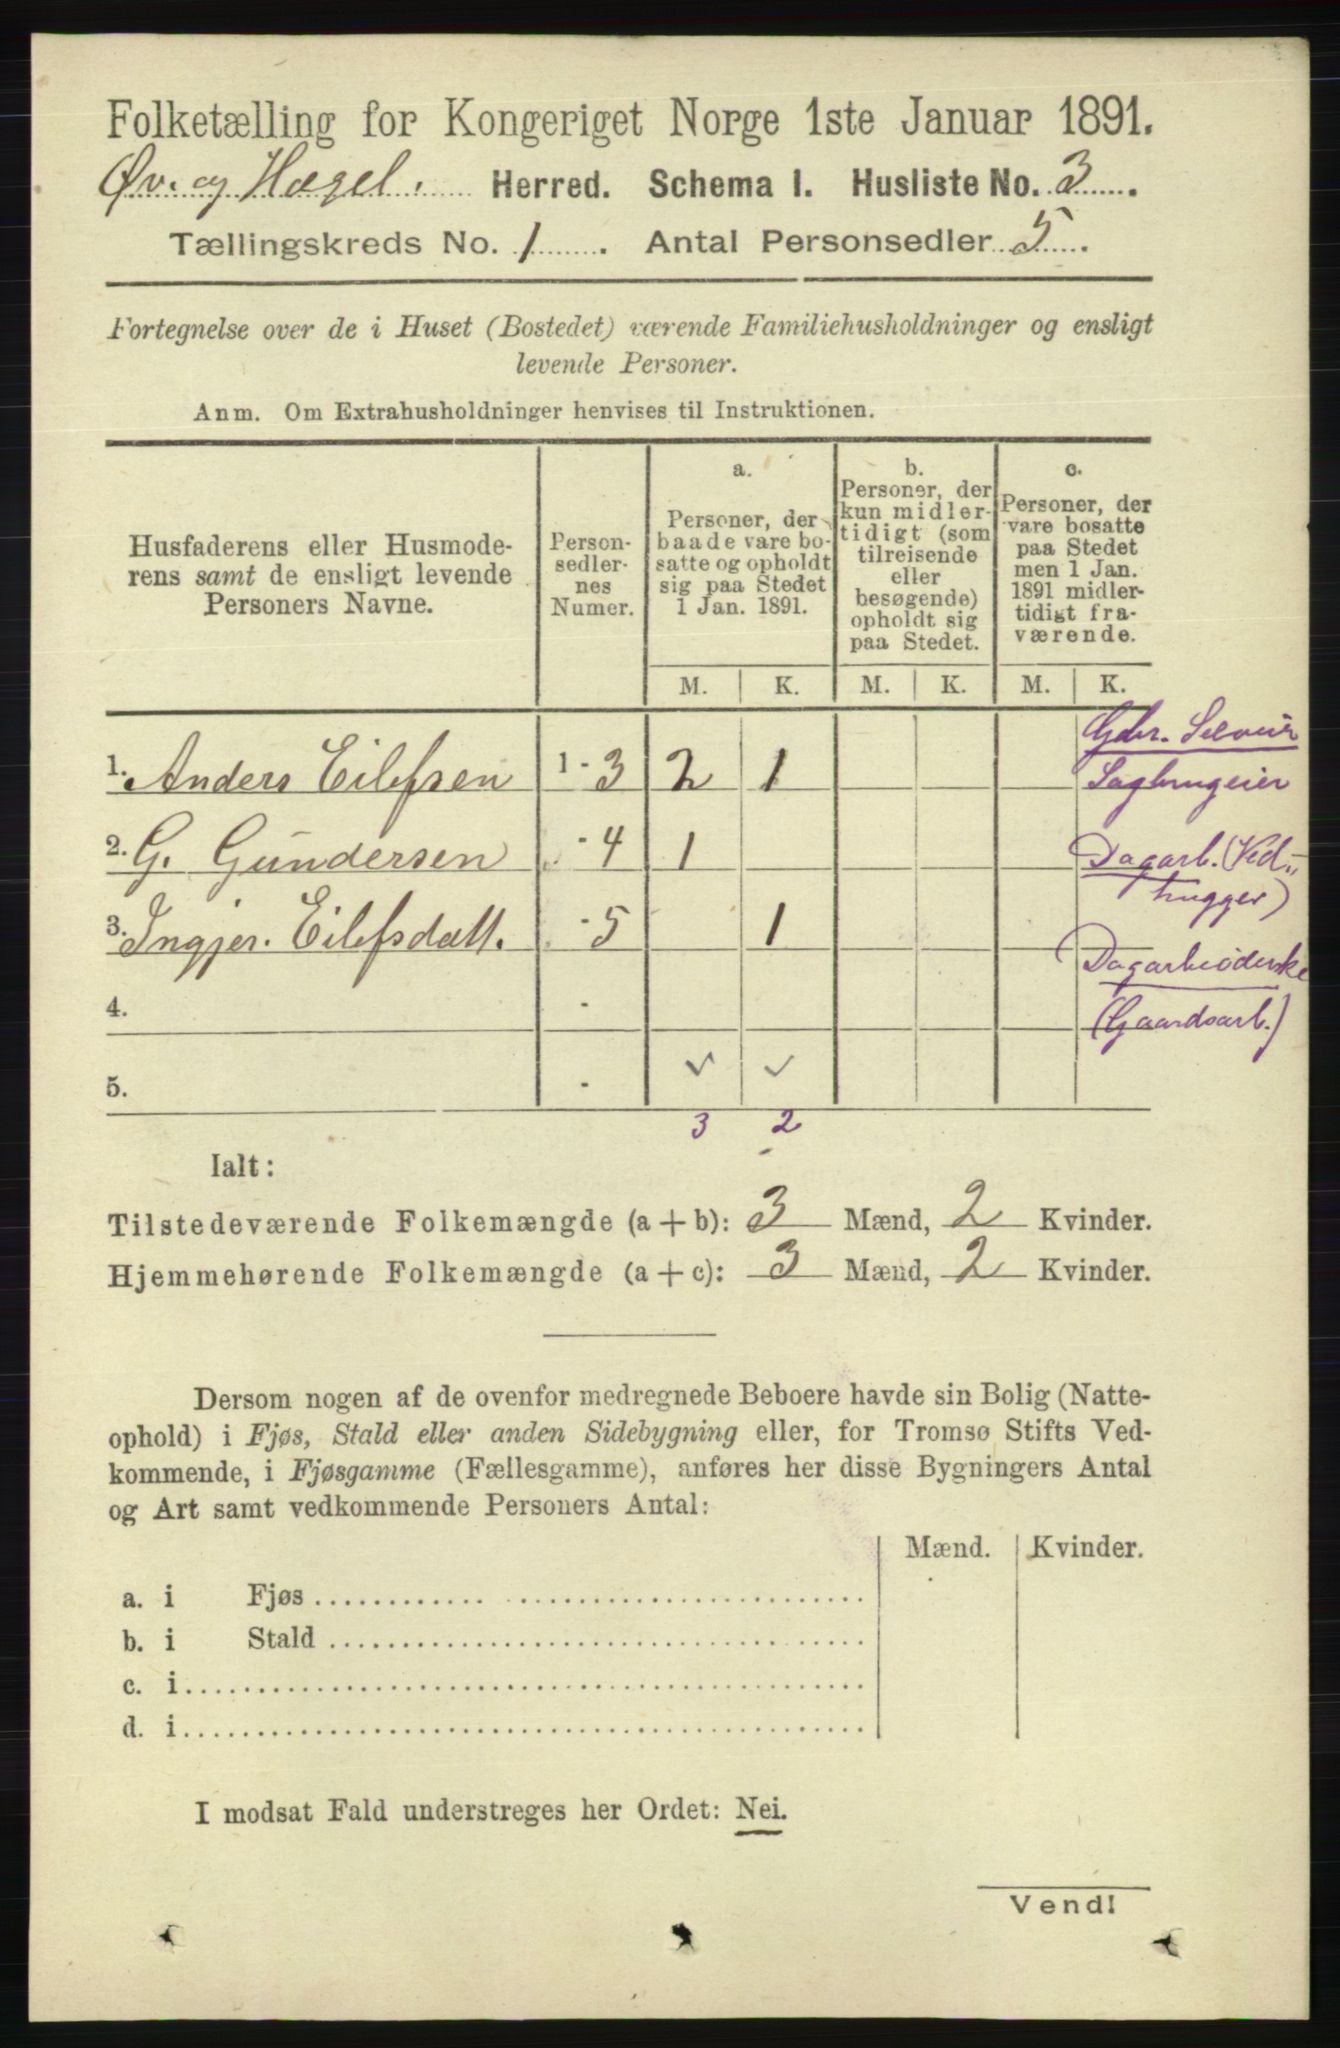 Folketælling for Kongeriget Norge 1ste Januar 1891.
Øv. og Hægel. Herred. Schema I. Husliste No. 3.
Tællingskreds No. 1. Antal Personsedler 5.
Fortegnelse over de i Huset (Bostedet) værende Familiehusholdninger og ensligt
levende Personer.
Anm. Om Extrahusholdninger henvises til Instruktionen.
Husfaderens eller Husmode-
rens samt de ensligt levende
Personers Navne.
Person-
sedler-
nes
Numer.
a.
Personer, der
baade vare bo-
satte og opholdt
sig paa Stedet
1 Jan. 1891.
b.
Personer, der
kun midler-
tidigt (som
tilreisende
eller
besøgende)
opholdt sig
paa Stedet.
c.
Personer, der
vare bosatte
paa Stedet
men 1 Jan.
1891 midler-
tidigt fra-
værende.
M. K. M. K. M. K.
Gbr. Selveier
1. Anders Eilefsen 1 - 3 2 1 Sagbrugeier
2. G. Gundersen - 4 1 Dagarb. (Ved-
hugger)
3. Ingjer. Eilefsdatt. - 5 1 Dagarbeiderske
4. - (Gaardsarb.)
5. -
3 2
Ialt:
Tilstedeværende Folkemængde (a + b): 3 Mænd, 2 Kvinder.
Hjemmehørende Folkemængde (a + c): 3 Mænd, 2 Kvinder.
Dersom nogen af de ovenfor medregnede Beboere havde sin Bolig (Natte-
ophold) i Fjøs, Stald eller anden Sidebygning eller, for Tromsø Stifts Ved-
kommende, i Fjøsgamme (Fællesgamme), anføres her disse Bygningers Antal
og Art samt vedkommende Personers Antal:
Mænd. Kvinder.
a. i Fjøs
b. i Stald
c. i
d. i
I modsat Fald understreges her Ordet: Nei.
Vend!